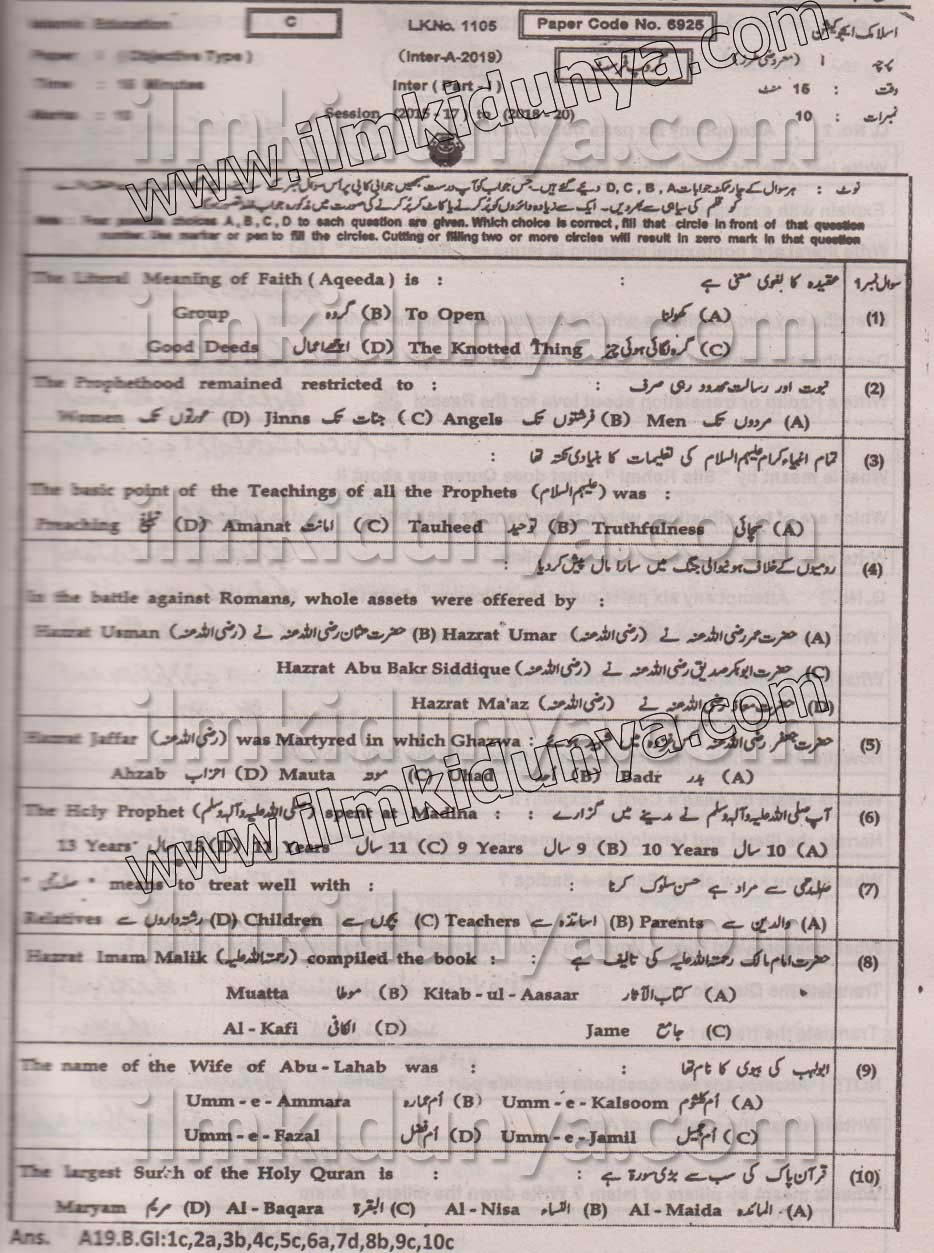 Islamic Education C LK.No. 1105 Paper Code No. 6925 اسلامک ایجوکیشن
Paper : I (Objective Type) (Inter-A-2019) پرچہ : I (معروضی طرز)
Time : 15 Minutes Inter (Part - I) وقت : 15 منٹ
Marks : 10 Session (2015 - 17) to (2018 - 20) نمبرات : 10
نوٹ : ہر سوال کے چار ممکنہ جوابات D, C, B, A دیئے گئے ہیں۔ جس جواب کو آپ درست سمجھیں جوابی کاپی پر اس سوال نمبر کے
Note : Four possible choices A, B, C, D to each question are given. Which choice is correct, fill that circle in front of that question
number. Use marker or pen to fill the circles. Cutting or filling two or more circles will result in zero mark in that question
سوال نمبر 1
The Literal Meaning of Faith (Aqeeda) is : عقیدہ کا لغوی معنی ہے :
(1) (A) کھولنا To Open (B) گروہ Group
(C) گرہ لگائی ہوئی چیز The Knotted Thing (D) اچھے اعمال Good Deeds
The Prophethood remained restricted to : نبوت اور رسالت محدود رہی صرف : (2)
(A) مردوں تک Men (B) فرشتوں تک Angels (C) جنات تک Jinns (D) عورتوں تک Women
تمام انبیاء کرام علیہم السلام کی تعلیمات کا بنیادی نکتہ تھا : (3)
The basic point of the Teachings of all the Prophets (علیہم السلام) was :
(A) سچائی Truthfulness (B) توحید Tauheed (C) امانت Amanat (D) تبلیغ Preaching
رومیوں کے خلاف ہونیوالی جنگ میں سارا مال پیش کر دیا : (4)
In the battle against Romans, whole assets were offered by :
(A) حضرت عمر رضی اللہ عنہ نے Hazrat Umar (رضی اللہ عنہ) (B) حضرت عثمان رضی اللہ عنہ نے Hazrat Usman (رضی اللہ عنہ)
(C) حضرت ابوبکر صدیق رضی اللہ عنہ نے Hazrat Abu Bakr Siddique (رضی اللہ عنہ)
(D) حضرت معاذ رضی اللہ عنہ نے Hazrat Ma'az (رضی اللہ عنہ)
Hazrat Jaffar (رضی اللہ عنہ) was Martyred in which Ghazwa : حضرت جعفر رضی اللہ عنہ کس غزوہ میں شہید ہوئے : (5)
(A) بدر Badr (B) احد Uhad (C) موتہ Mauta (D) احزاب Ahzab
The Holy Prophet (صلی اللہ علیہ وآلہ وسلم) spent at Madina : آپ صلی اللہ علیہ وآلہ وسلم نے مدینے میں گزارے : (6)
(A) 10 سال 10 Years (B) 9 سال 9 Years (C) 11 سال 11 Years (D) 13 سال 13 Years
" صلہ رحمی " means to treat well with : صلہ رحمی سے مراد ہے حسن سلوک کرنا : (7)
(A) والدین سے Parents (B) اساتذہ سے Teachers (C) بچوں سے Children (D) رشتہ داروں سے Relatives
Hazrat Imam Malik (رحمتہ اللہ علیہ) compiled the book : حضرت امام مالک رحمتہ اللہ علیہ کی تالیف ہے : (8)
(A) کتاب الآثار Kitab - ul - Aasaar (B) موطا Muatta
(C) جامع Jame (D) الکافی Al - Kafi
The name of the Wife of Abu - Lahab was : ابولہب کی بیوی کا نام تھا : (9)
(A) اُم کلثوم Umm - e - Kalsoom (B) اُم عمارہ Umm - e - Ammara
(C) اُم جمیل Umm - e - Jamil (D) اُم فضل Umm - e - Fazal
The largest Surah of the Holy Quran is : قرآن پاک کی سب سے بڑی سورۃ ہے : (10)
(A) المائدہ Al - Maida (B) النساء Al - Nisa (C) البقرۃ Al - Baqara (D) مریم Maryam
Ans. A19.B.GI:1c,2a,3b,4c,5c,6a,7d,8b,9c,10c
www.ilmkidunya.com
www.ilmkidunya.com
ilmkidunya.com
ilmkidunya.com
ilmkidunya.com
ilmkidunya.com
ilmkidunya.com
ilmkidunya.com